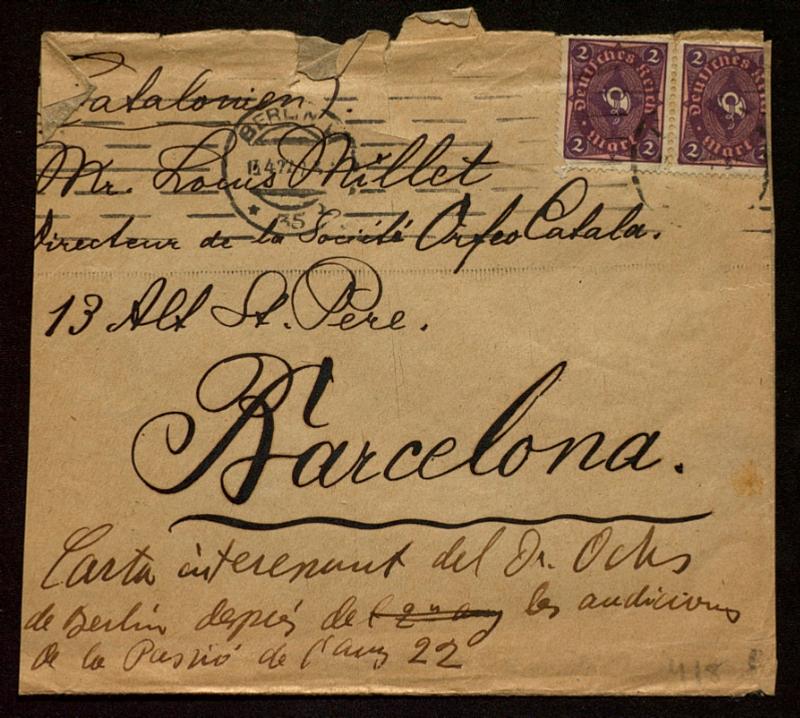 Catalonien).
Mr. Louis Millet
Directeur de la Société Orfeo Catala.
13 Alt St. Pere.
Barcelona.
Carta interesant del Dr. Ochs
de Berlin després de les audicions
de la Passió de l'any 22
418
BERLIN
35
2 2
Deutsches Reich
Mark
2 2
2 2
Deutsches Reich
Mark
2 2